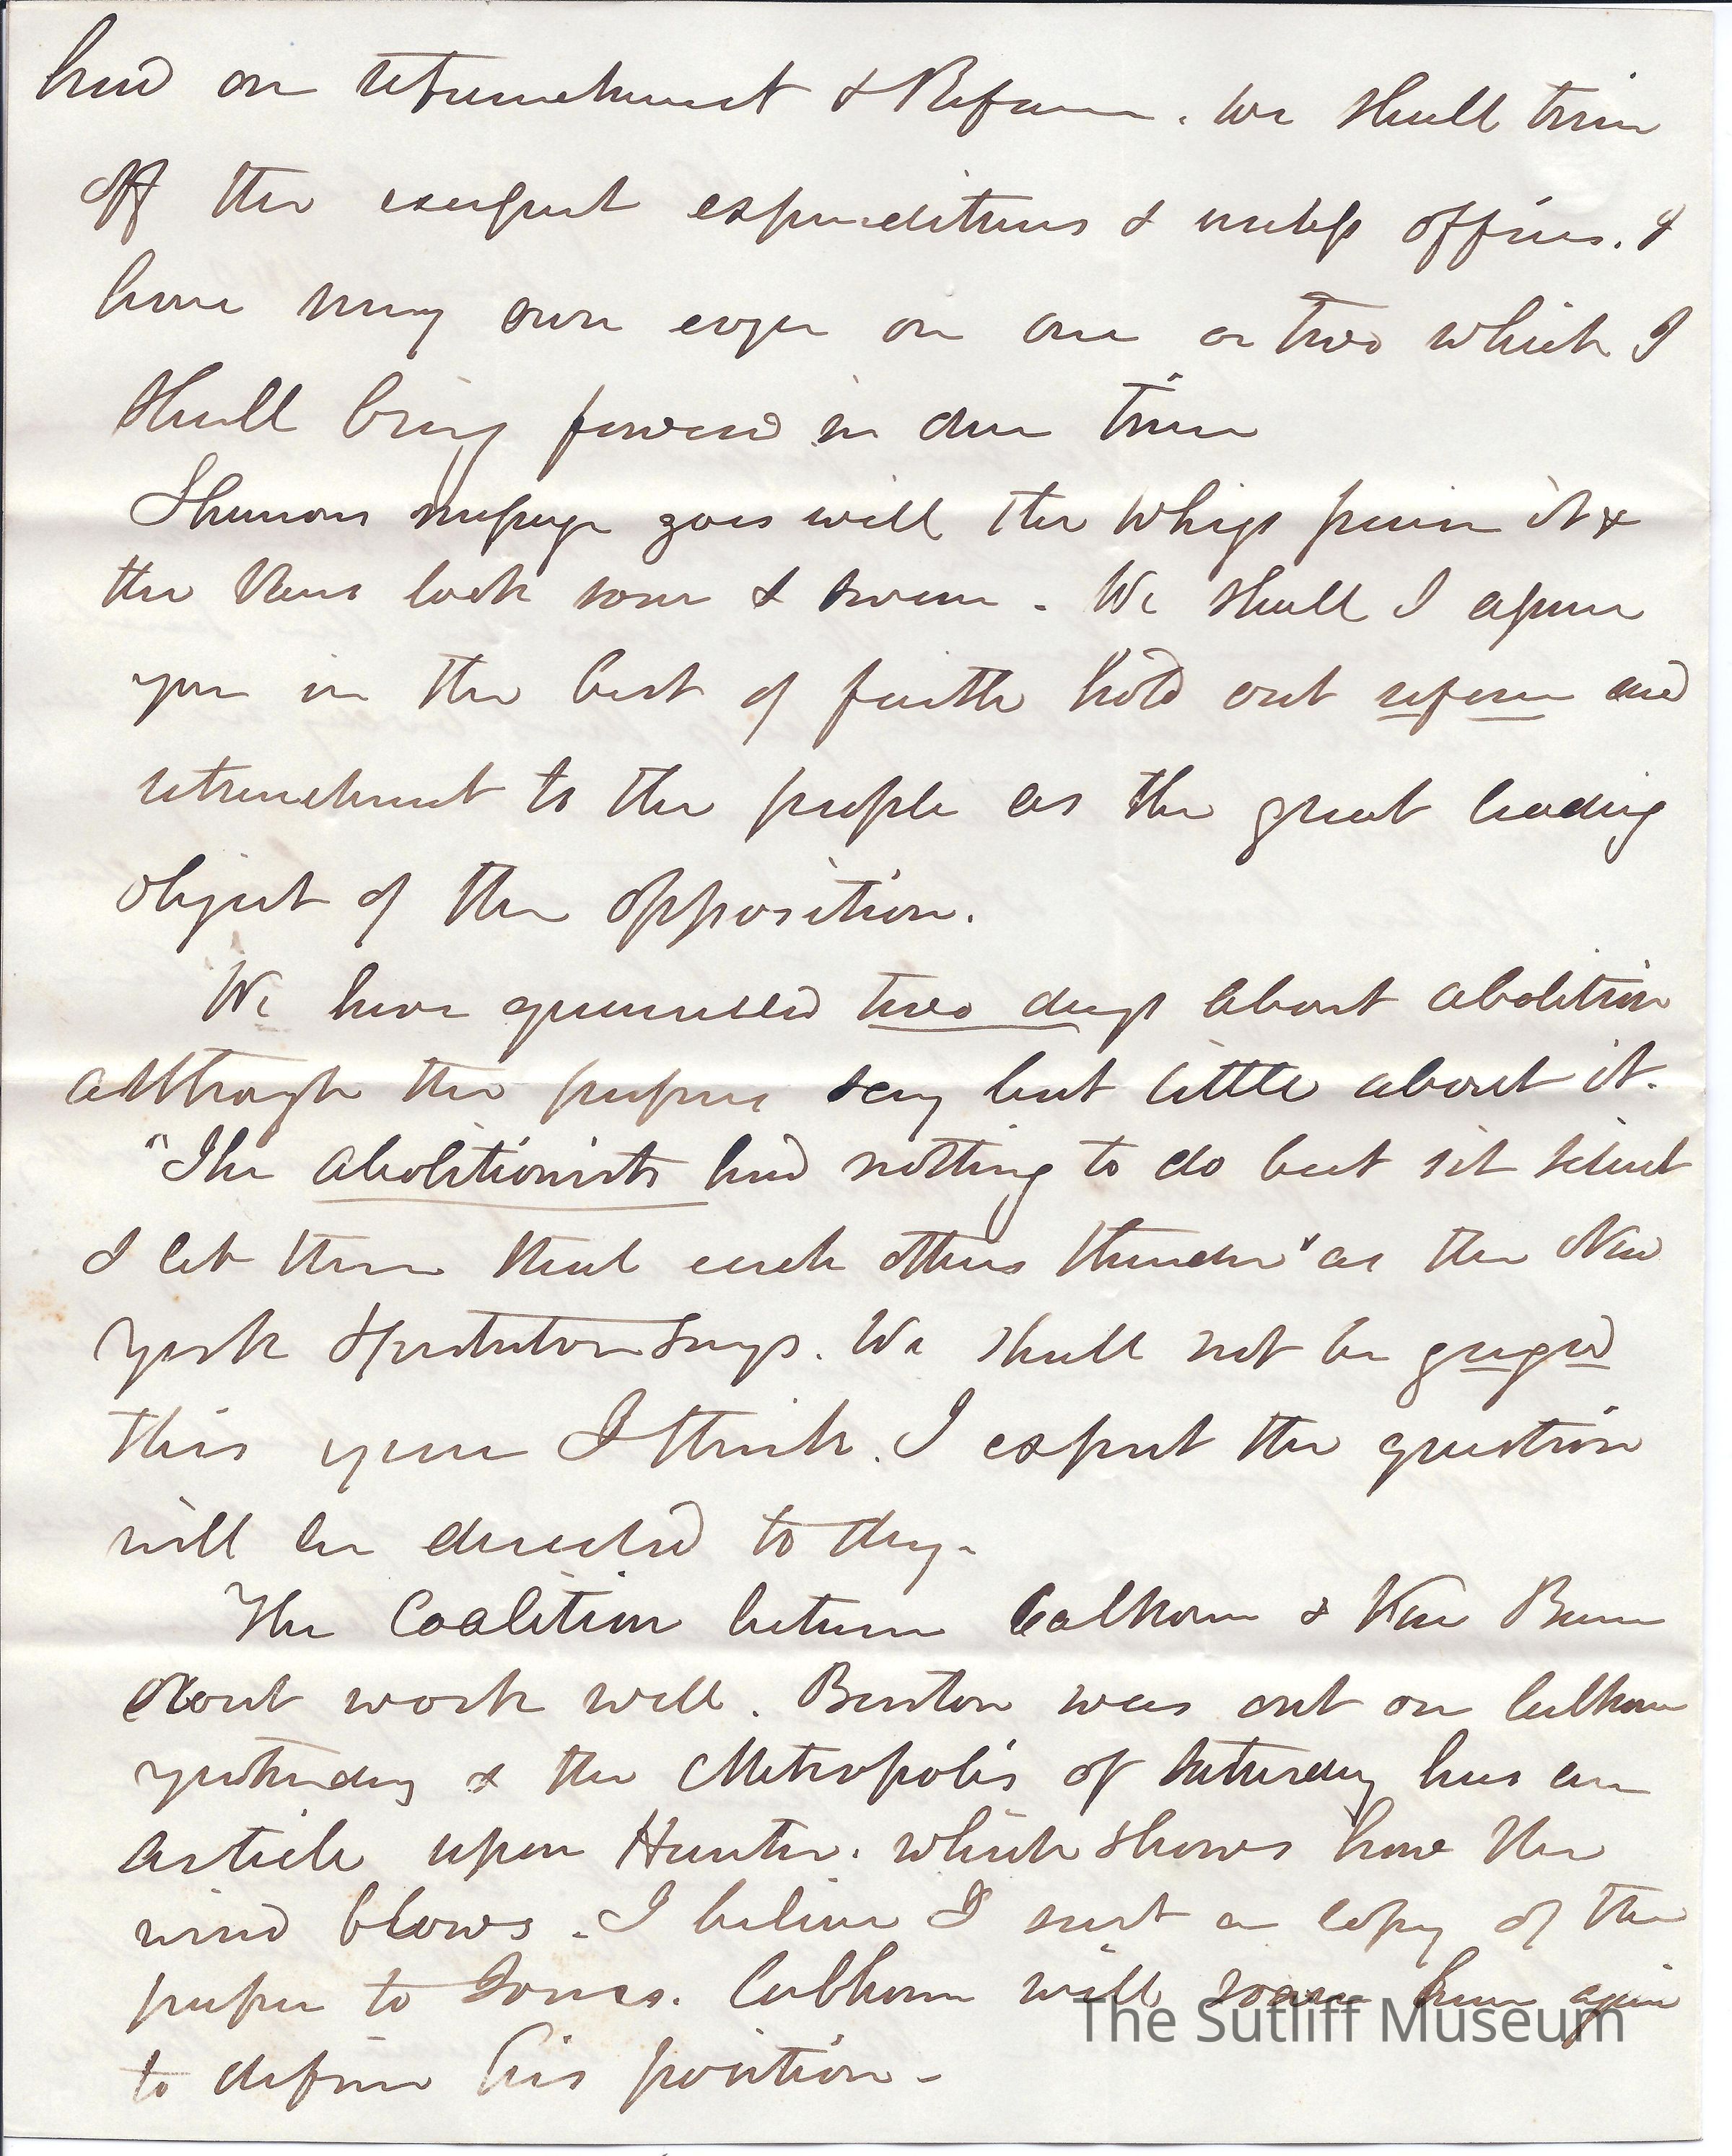 hard on retrenchment & Reform. We shall trim
off the exorbitant expenditures & useless offices. &
have my own eye on one or two which I
shall bring forward in due time
Shannons message goes well the Whigs praise it &
the Vans look sour & swear. We shall I assure
you in the best of faith hold out reform and
retrenchment to the people as the great leading
object of the opposition.
We have quarrelled two days about abolition
although the papers say but little about it.
"The abolitionists had nothing to do but sit silent
& let them steal each others thunder" as the New
York Spectator says. We shall not be gaged
this year I think. I expect the question
will be directed to day.
The Coalition between Calhoun & Van Buren
dont work well. Benton was out on Calhoun
yesterday & the Metropolis of Saturday has an
article upon Hunter. which shows how the
wind blows. I believe I sent a copy of the
paper to Jones. Calhoun will soon have again
to define his position.
The Sutliff Museum